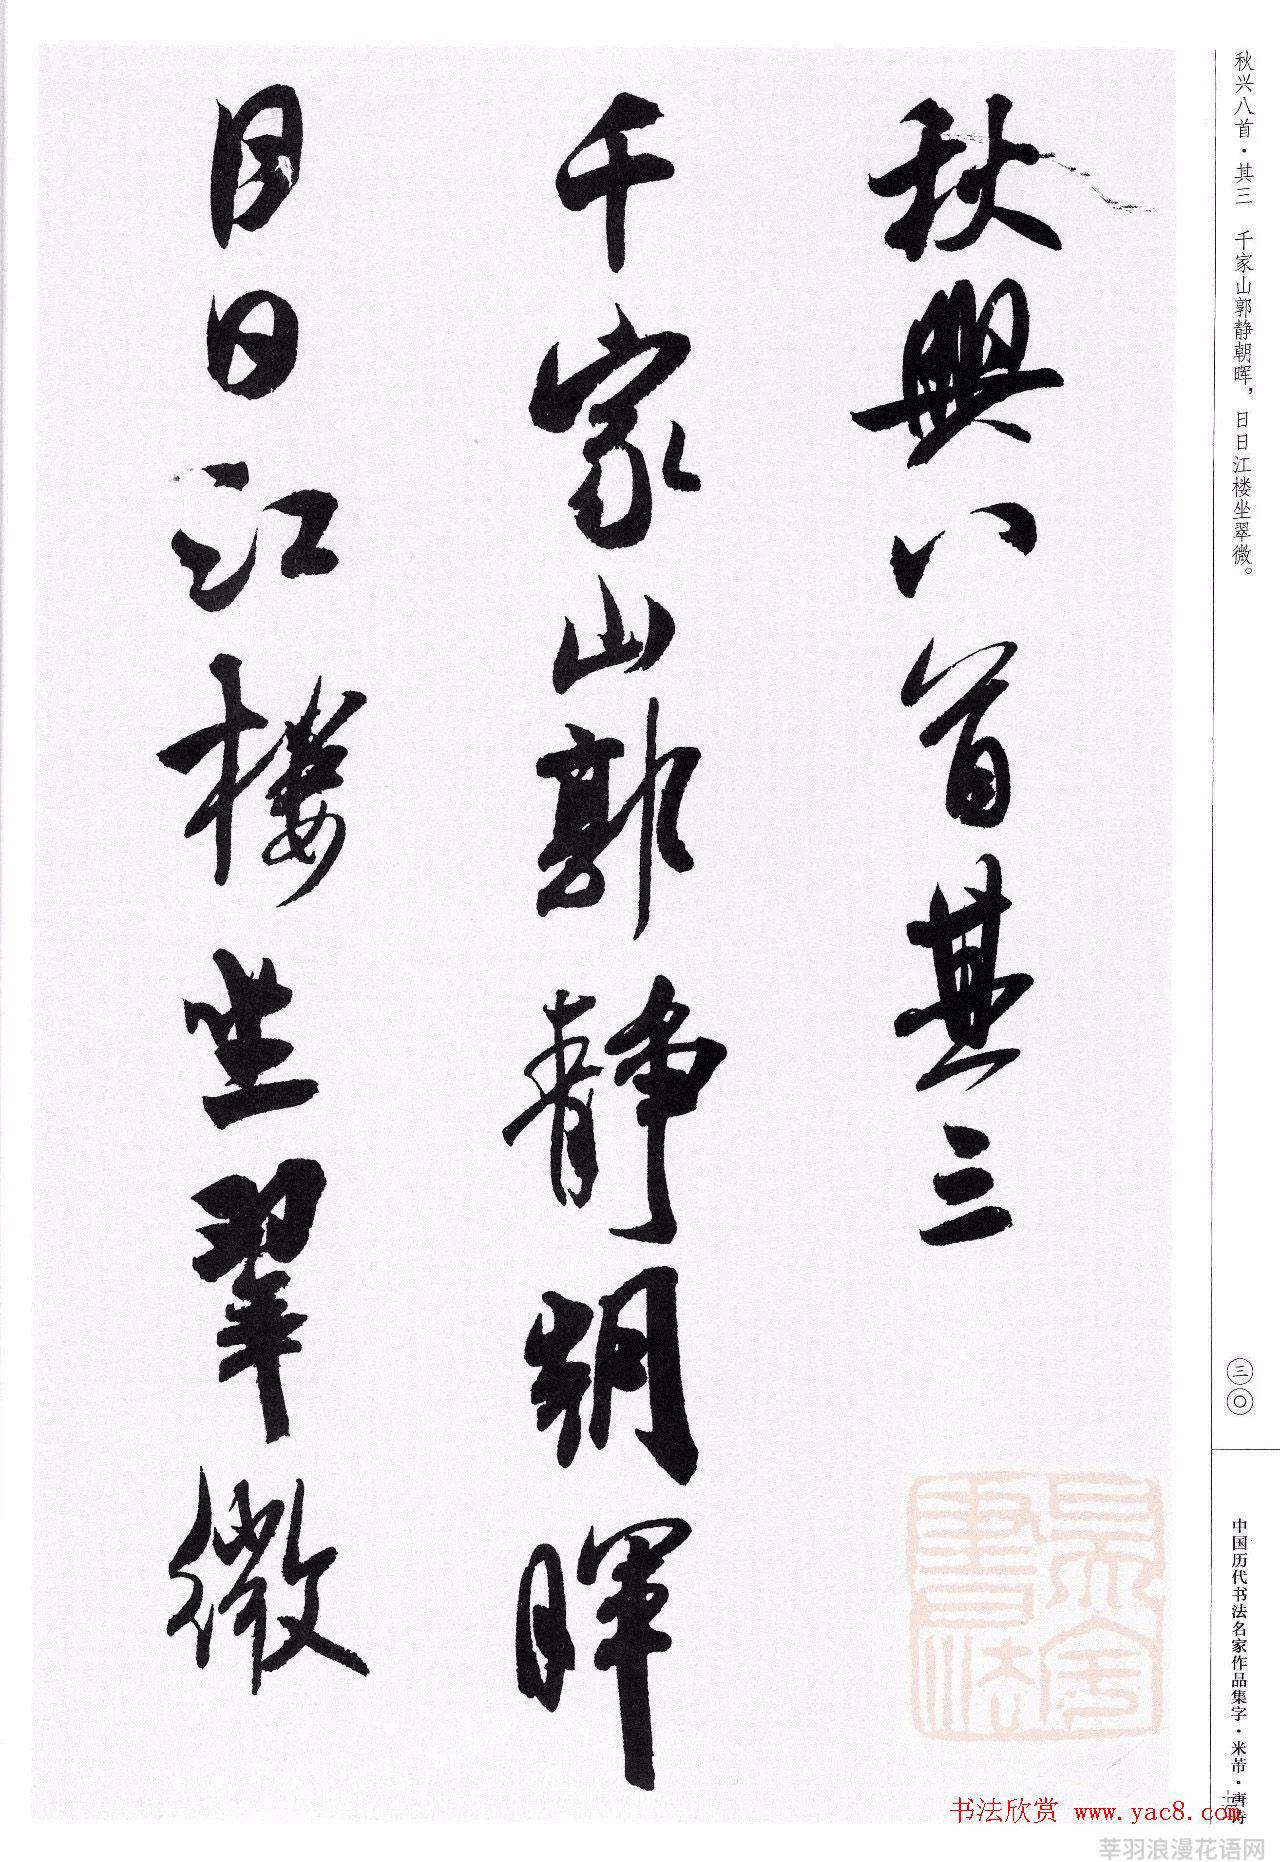 秋兴八首·其三　千家山郭静朝晖，日日江楼坐翠微。
三〇
中国历代书法名家作品集字·米芾·唐诗
秋興八首其三
千家山郭静朝暉
日日江樓坐翠微
书法欣赏 www.yac8.com
莘羽浪漫花语网